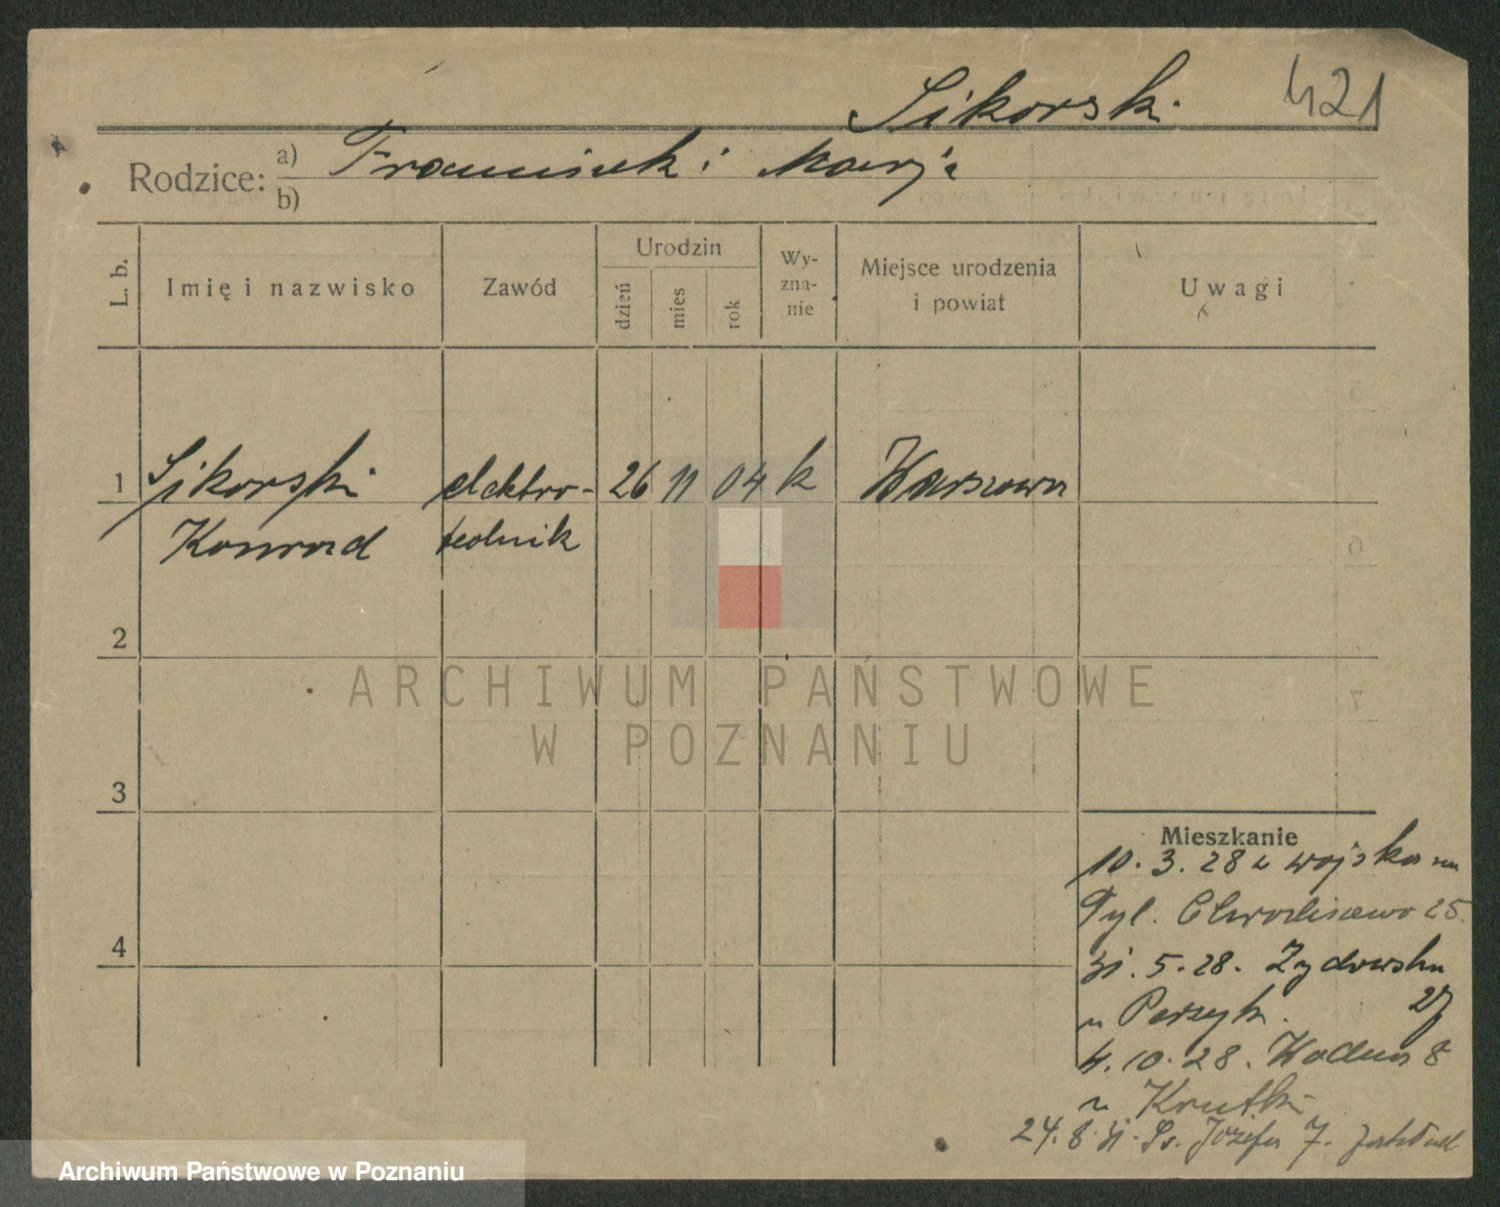 Sikorski
421
Rodzice: a) Franciszek i Marja
b)
L. b. Imię i nazwisko Zawód Urodzin dzień mies rok Wy-zna-nie Miejsce urodzenia i powiat Uwagi
1 Sikorski elektro- 26 11 04 k Warszawa
Konrad technik
2
ARCHIWUM PAŃSTWOWE
W POZNANIU
3
Mieszkanie
10. 3. 28 z wojska
25.
5. 28. Żydowska
27
u
4. 10. 28. Wodna 8
u Krutki
24. 8. 31. Św. Józefa 7.
4
Archiwum Państwowe w Poznaniu